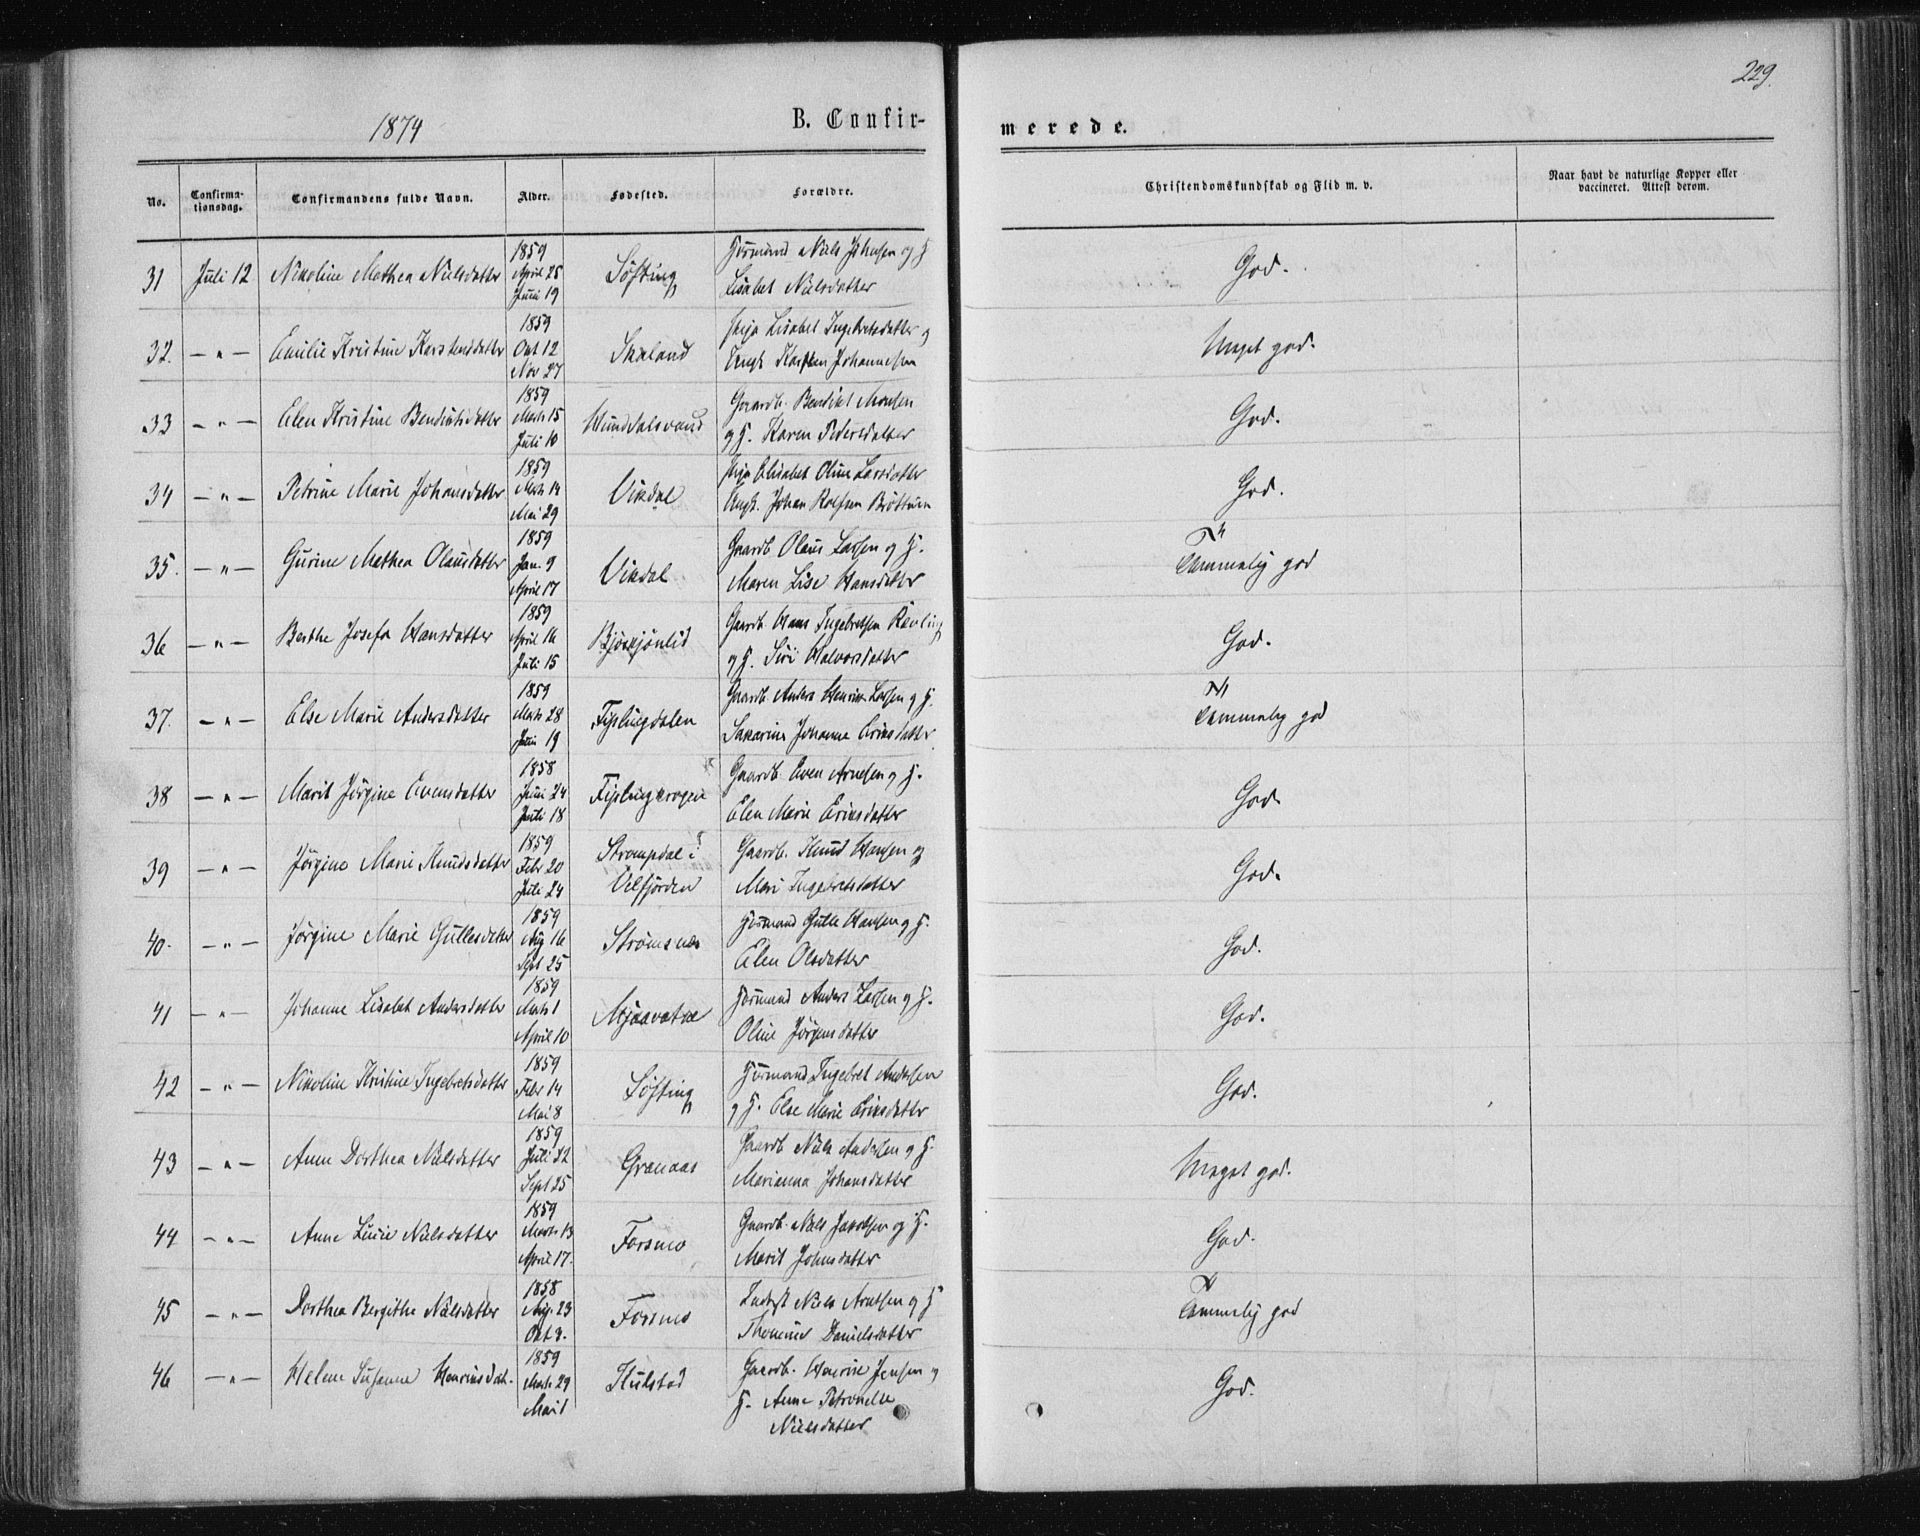 229.
1874
B. Confirmerede.
No. Confirmationsdag. Confirmandens fulde Navn. Alder. Fødested. Forældre. Christendomskundskab og Flid m. v. Naar havt de naturlige Kopper eller vaccineret. Attest derom.
31 Juli 12 Nikoline Mathea Nielsdatter 1859 April 25 Juni 19 Søfting Husmand Niels Johnsen og H Lisabet Nielsdatter God.
32. — " — Emilie Kristine Karstensdatter 1859 Oct 12 Nov 27 Skaland Pige Lisabet Ingebretsdatter og Ungk Karsten Johannessen Meget god.
33 — " — Elen Kristine Bendiktsdatter 1859 Marts 15 Juli 10 Hunddalsvand Gaardb. Bendikt Monsen og H. Karen Pedersdatter God.
34 — " — Petrine Marie Johansdatter 1859 Marts 14 Mai 29 Vikdal Pige Elisabet Oline Larsdatter Ungk. Johan Rolfsen Brøttum God.
35. — " — Gurine Mathea Olausdatter 1859 Jan. 9 April 17 Vikdal Gaardb Olaus Larsen og H. Maren Lise Hansdatter Temmelig god
36 — " — Berthe Josefa Hansdatter 1859 April 16 Juli 15 Bjørkjønlid Gaardb. Hans Ingebretsen Røvling og H. Siri Halvorsdatter God.
37. — " — Else Marie Andersdatter 1859 Marts 28 Juni 19 Fiplingdalen Gaardb Anders Henrik Larsen og H. Sakarine Johanna Eriksdatter Temmelig god
38 — " — Marit Jørgine Evensdatter 1858 Juni 24 Juli 18 Fiplingkrogen Gaardb. Even Arnesen og H. Elen Marie Eriksdatter God.
39 — " — Jørgine Marie Knudsdatter 1859 Febr 20 Juli 24 Strompdal i Velfjorden Gaardb. Knud Hansen og Mari Ingebretsdatter God.
40. — " — Jørgine Marie Gullesdatter 1859 Aug 16 Sept 25 Strømsnæs Husmand Gulle Hansen og H. Elen Olsdatter God.
41 — " — Johanne Lisabet Andersdatter 1859 Marts 1 April 10 Mjaavatne Husmand Anders Larsen og H. Oline Jørgensdatter God.
42 — " — Nikoline Kristine Ingebretsdatter 1859 Febr 14 Mai 8 Søfting Husmand Ingebret Andersen og H. Else Marie Eriksdatter God.
43 — " — Anne Dorthea Nielsdatter 1859 Juli 22 Sept 25 Granaas Gaardb Niels Andersen og H. Marianna Johansdatter Meget god.
44 — " — Anne Lucie Nielsdatter 1859 Marts 13 April 17. Forsmo Gaardb. Niels Jakobsen og H. Marit Johnsdatter God.
45 — " — Dorthea Bergithe Nielsdatter 1858 Aug. 23 Oct 3. Forsmo Inderst Niels Arntsen og H Thomine Danielsdatter Temmelig god
46 — " — Helene Susanne Henriksdat. 1859 Marts 29 Mai 1 Kulstad Gaardb. Henrik Jensen og H. Anne Petronelle Nielsdatter God.